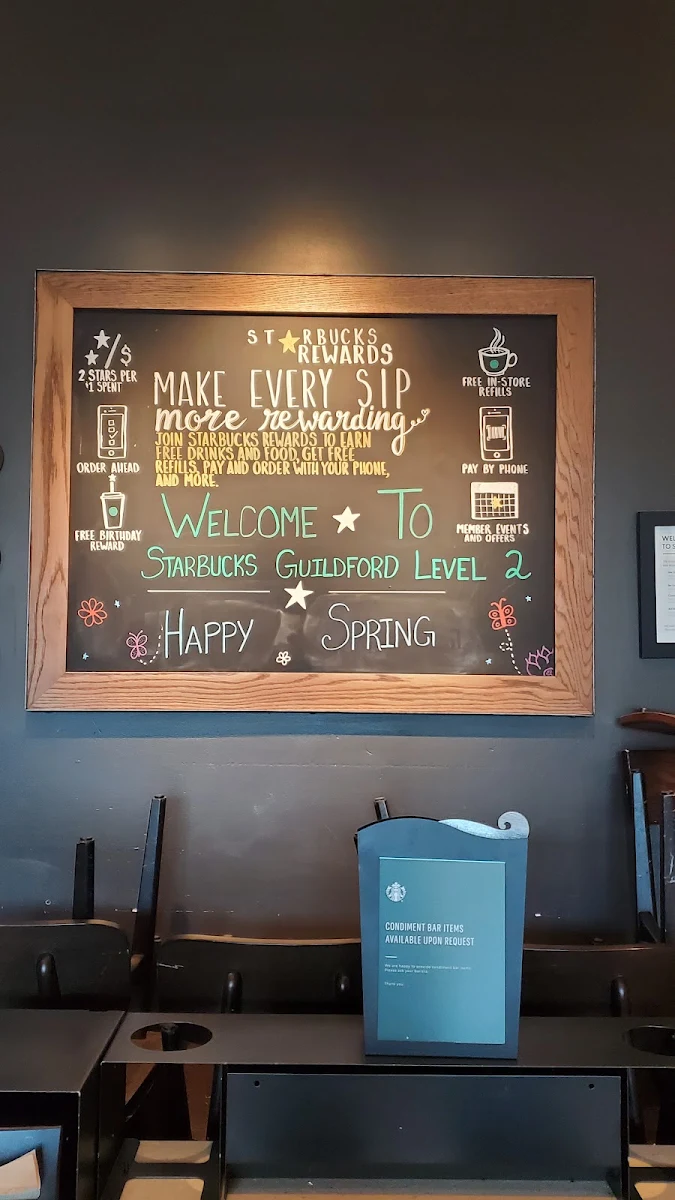 ST RBUCKS
REWARDS
2 STARS PER
$1 SPENT
MAKE EVERY SIP
more rewarding
FREE IN-STORE
REFILLS
JOIN STARBUCKS REWARDS TO EARN
FREE DRINKS AND FOOD, GET FREE
REFILLS, PAY AND ORDER WITH YOUR PHONE,
AND MORE.
ORDER AHEAD
PAY BY PHONE
FREE BIRTHDAY
REWARD
MEMBER EVENTS
AND OFFERS
WELCOME TO
STARBUCKS GUILDFORD LEVEL 2
HAPPY SPRING
WEL
TO S
CONDIMENT BAR ITEMS
AVAILABLE UPON REQUEST
Thank you